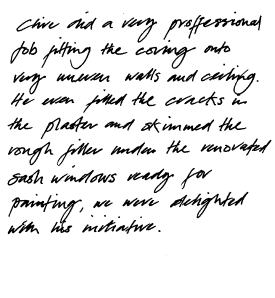 Clive did a very proffessional
job fitting the coving onto
very uneven walls and ceiling.
He even filled the cracks in
the plaster and skimmed the
rough filler under the renovated
sash windows ready for
painting, we were delighted
with his initiative.